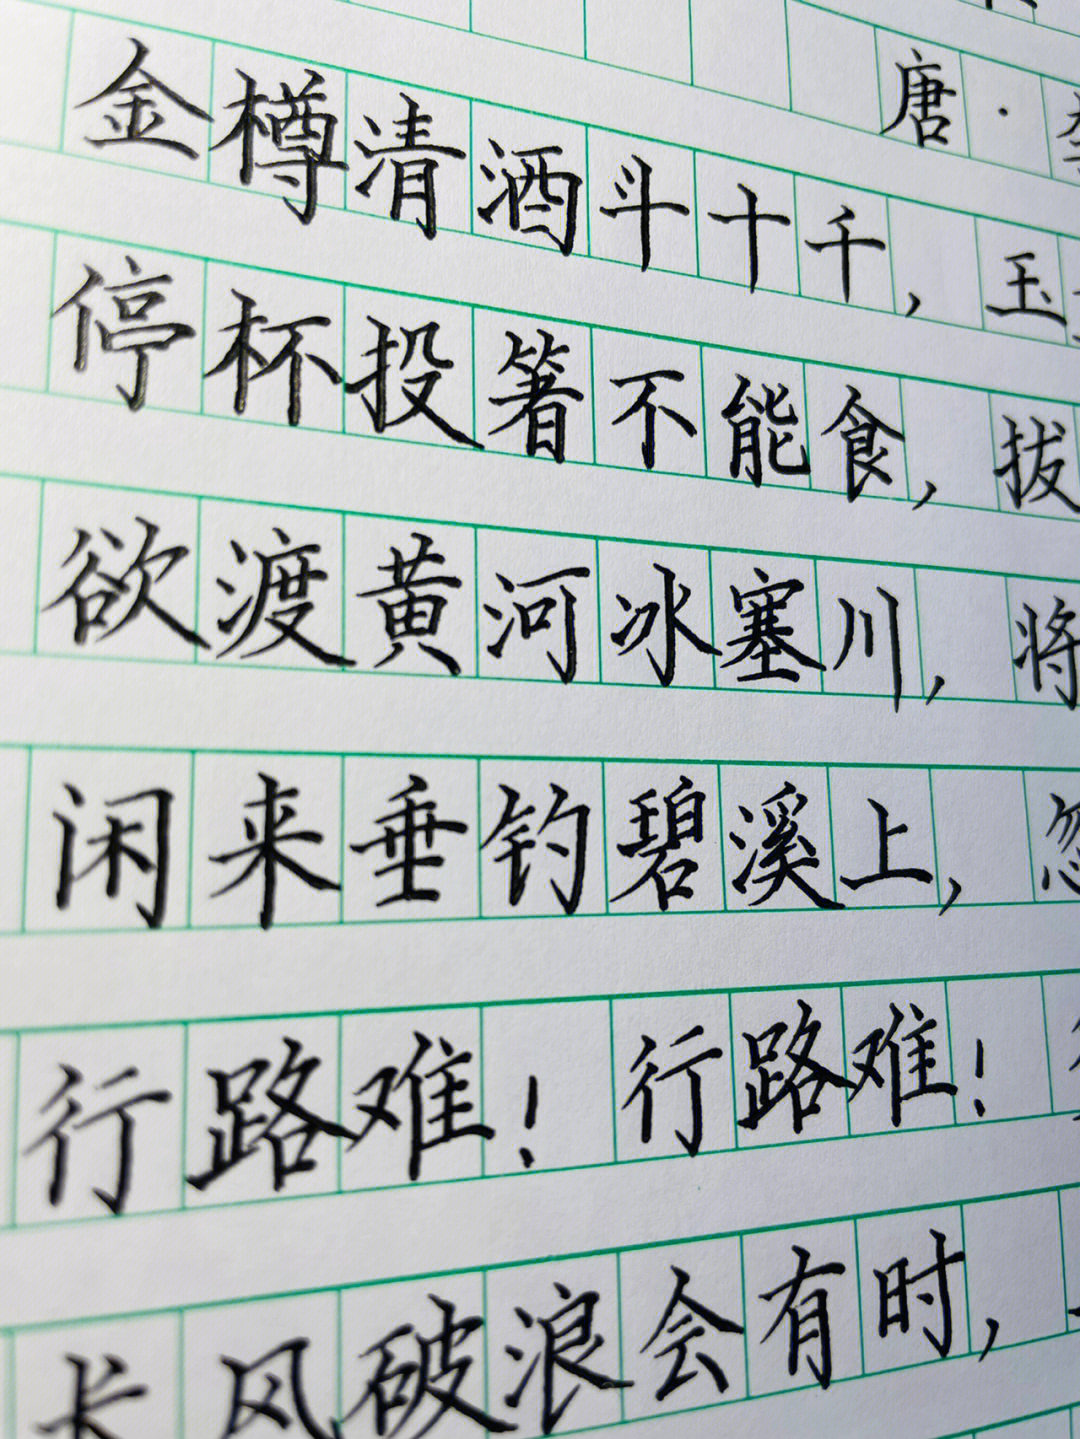 唐·李
金樽清酒斗十千，玉
停杯投箸不能食，拔
欲渡黄河冰塞川，将
闲来垂钓碧溪上，忽
行路难！行路难！
长风破浪会有时，